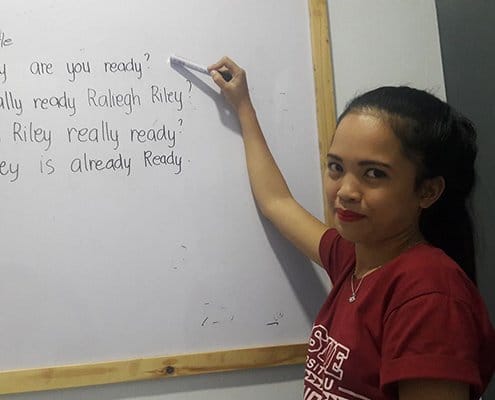 y are you ready?
ally ready Raliegh Riley?
Riley really ready?
ey is already Ready.